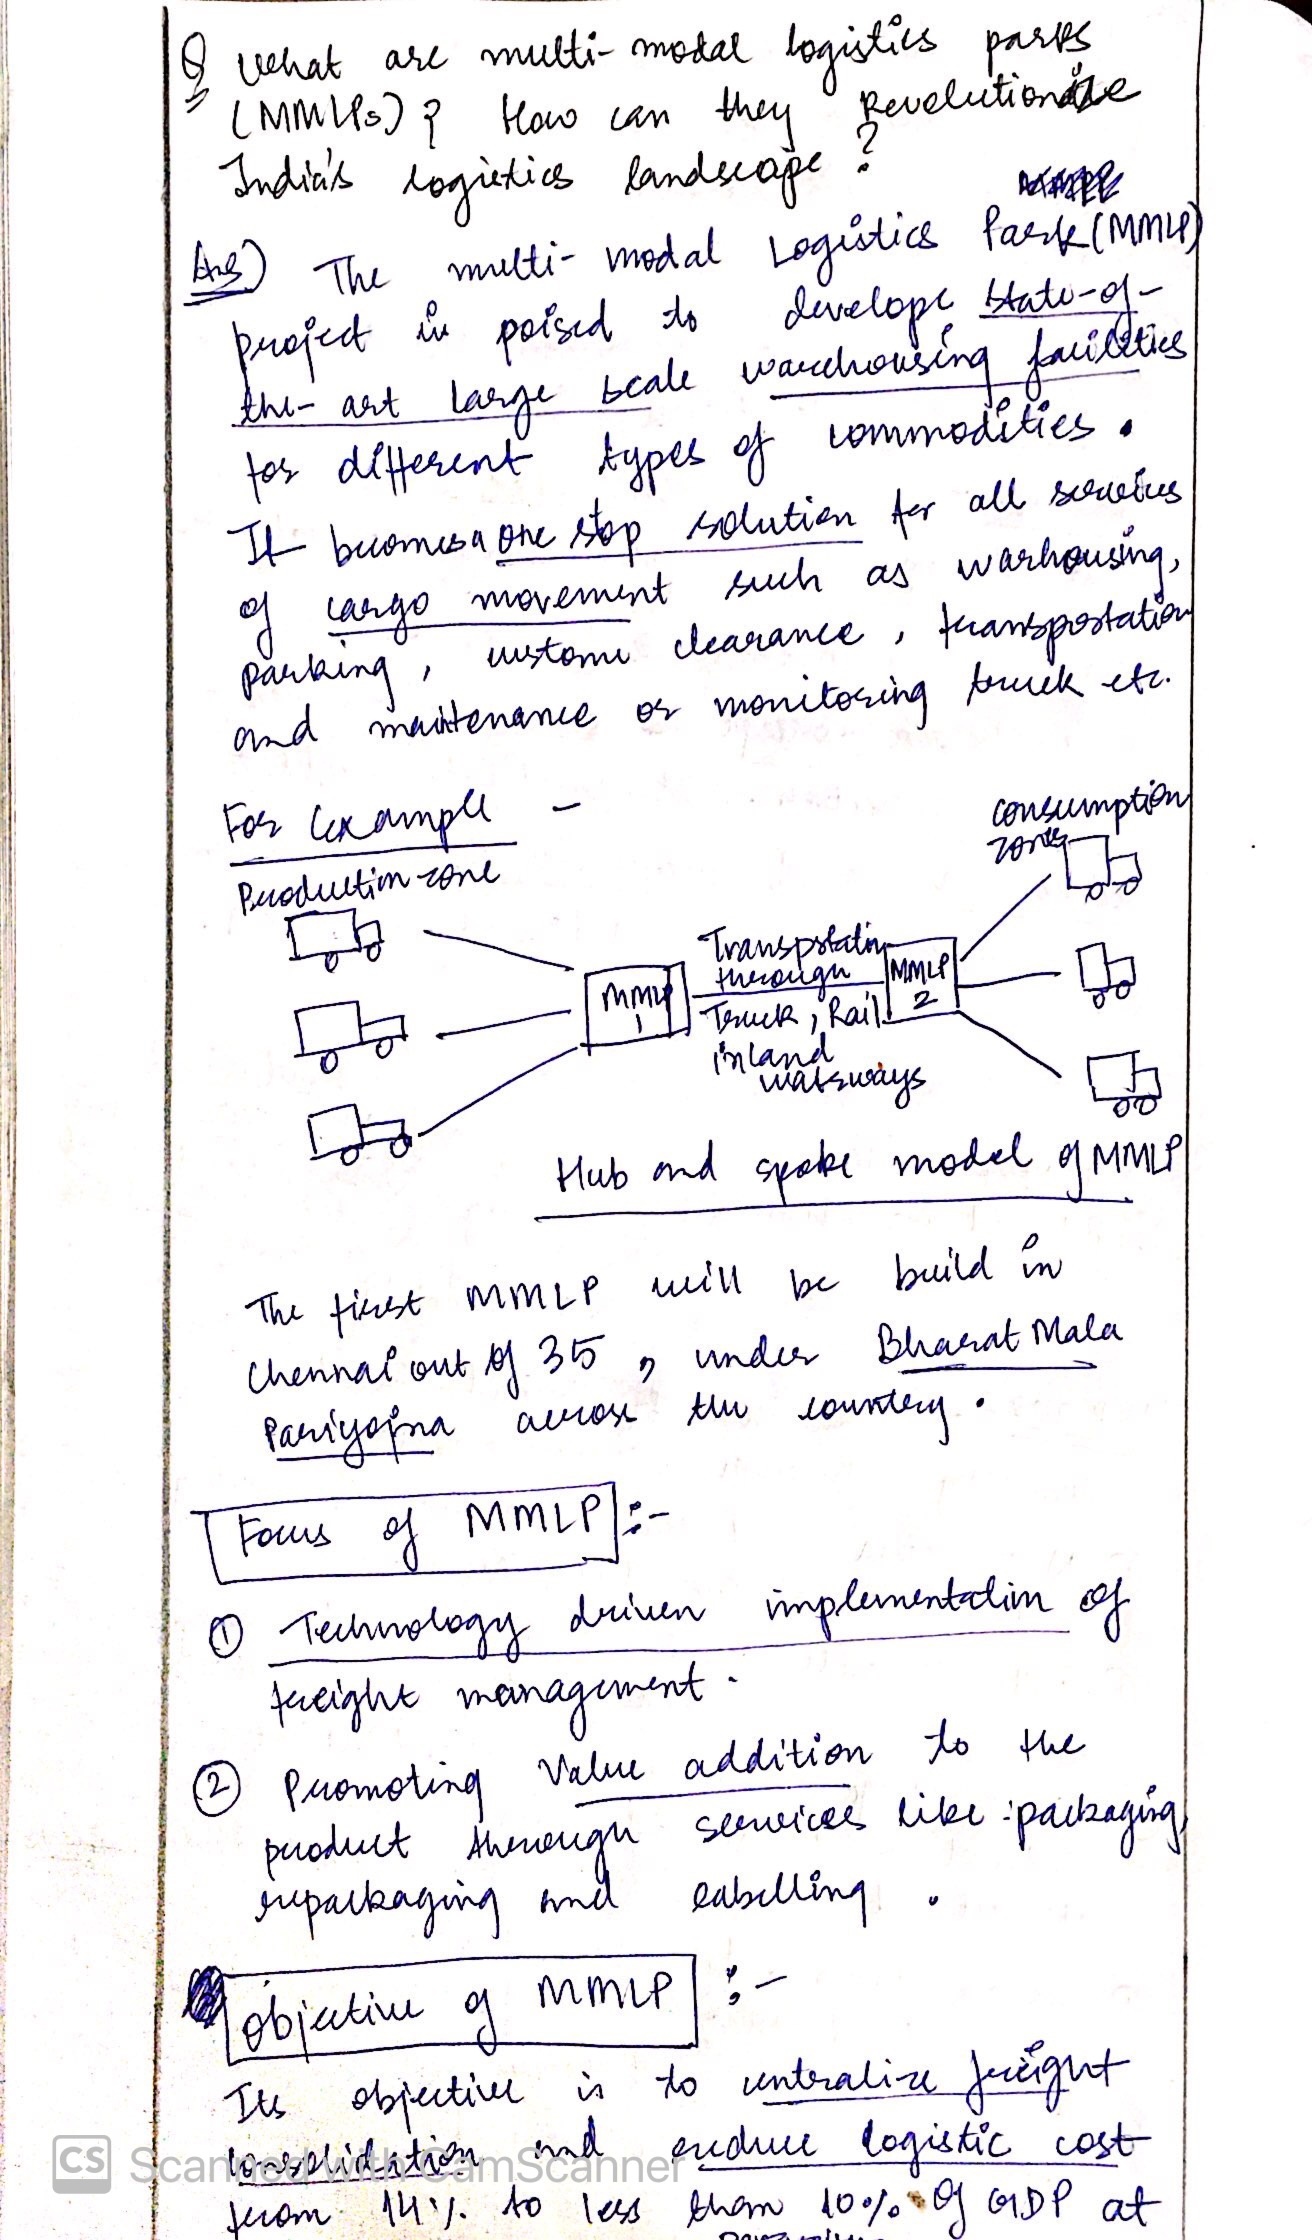 Q What are multi-modal logistics parks
(MMLPs)? How can they Revolutionize
India's logistics landscape?
Ans) The multi-modal Logistics Park (MMLP)
project is poised to develope state-of-
the-art large scale warehousing facilities
for different types of commodities.
It becomes a one stop solution for all services
of cargo movement such as warhousing,
parking, custom clearance, transpostation
and maintenance or monitoring truck etc.
For Example -
Production zone
consumption
zones
Transpotation
through
MMLP
1
MMLP
2
Truck, Rail
inland
watsways
Hub and spoke model of MMLP
The first MMLP will be build in
Chennai out of 35, under Bharat Mala
Pariyojna across the country.
Focus of MMLP :-
① Technology driven implementation of
freight management.
② Promoting Value addition to the
product through services like :packaging,
repackaging and labelling.
Objective of MMLP :-
Its objective is to centralize freight
consolidation and reduce logistic cost
from 14% to less than 10% of GDP at
CS Scanned with CamScanner